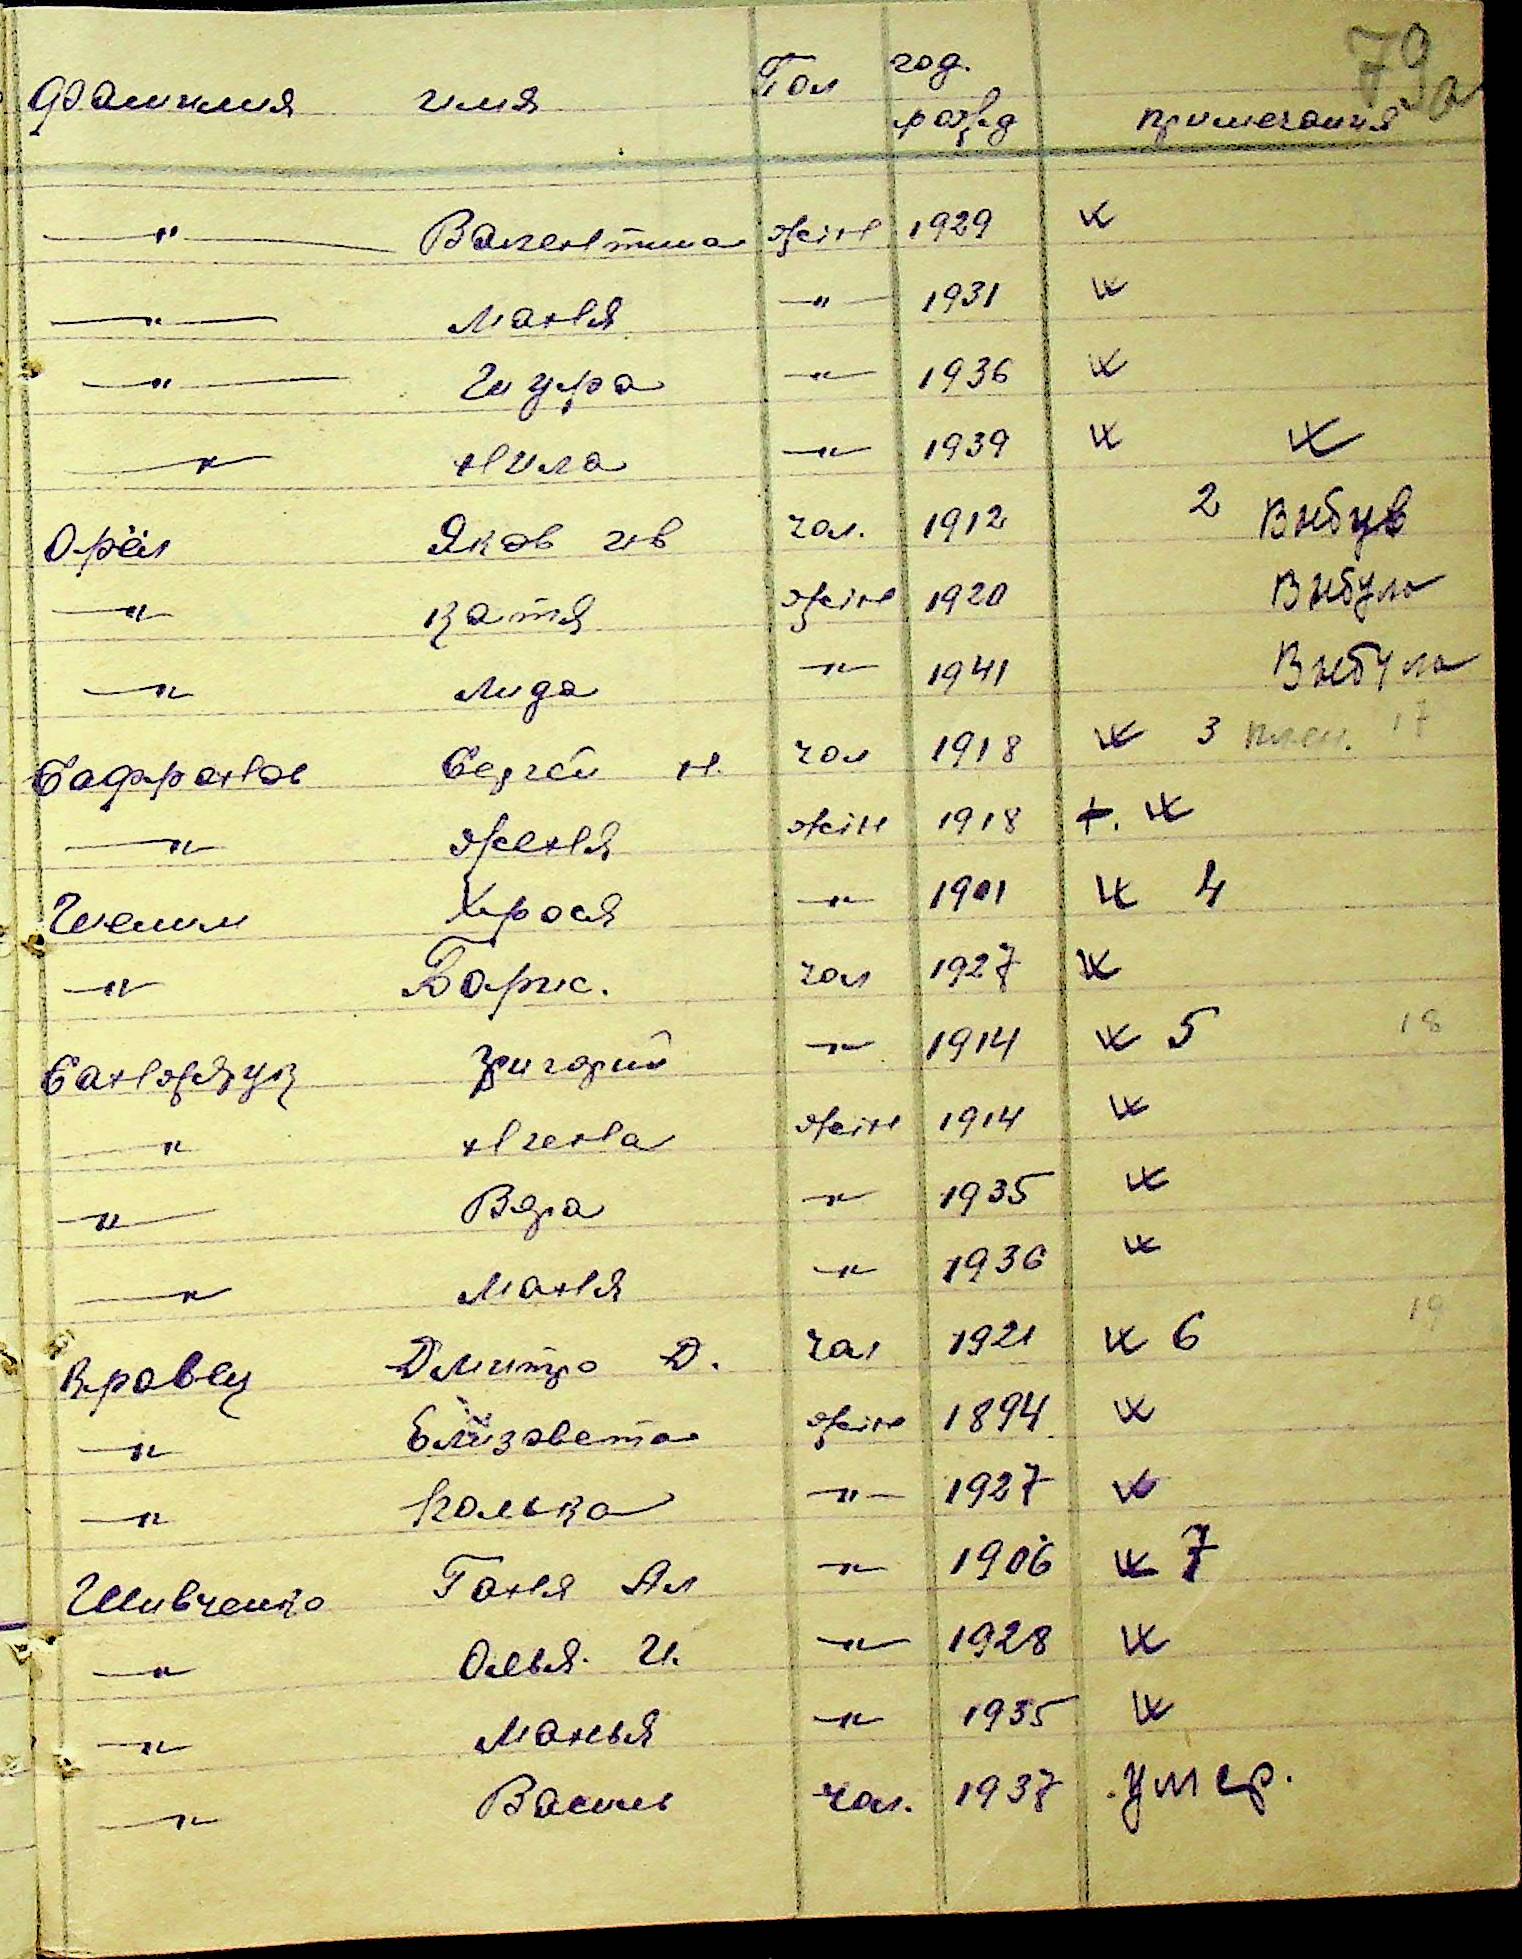 79а
Фамилия имя Пол год. рожд примечания
—"— Валентина жін 1929 Ж
—"— Маня —"— 1931 Ж
—"— Шура —"— 1936 Ж
—"— Нила —"— 1939 Ж Ж
Орёл Яков ив чол. 1912 2 Выбув
—"— Катя жін 1920 Выбула
—"— Лида —"— 1941 Выбула
Сафронов Сергей Н. чол 1918 Ж 3 плен. 17
—"— Женя жін 1918 +. Ж
Шелим Хрося —"— 1901 Ж 4
—"— Борис. чол 1927 Ж
Санжарук Григорий —"— 1914 Ж 5 18
—"— жін 1914 Ж
—"— Вера —"— 1935 Ж
—"— Маня —"— 1936 Ж
Кравец Дмитро Д. чол 1921 Ж 6 19
—"— Елизавета жін 1894 Ж
—"— Колька —"— 1927 Ж
Шивченко Ганя Ал —"— 1906 Ж 7
—"— Олья. И. —"— 1928 Ж
—"— Манья —"— 1935 Ж
—"— Василь чол. 1937 умер.